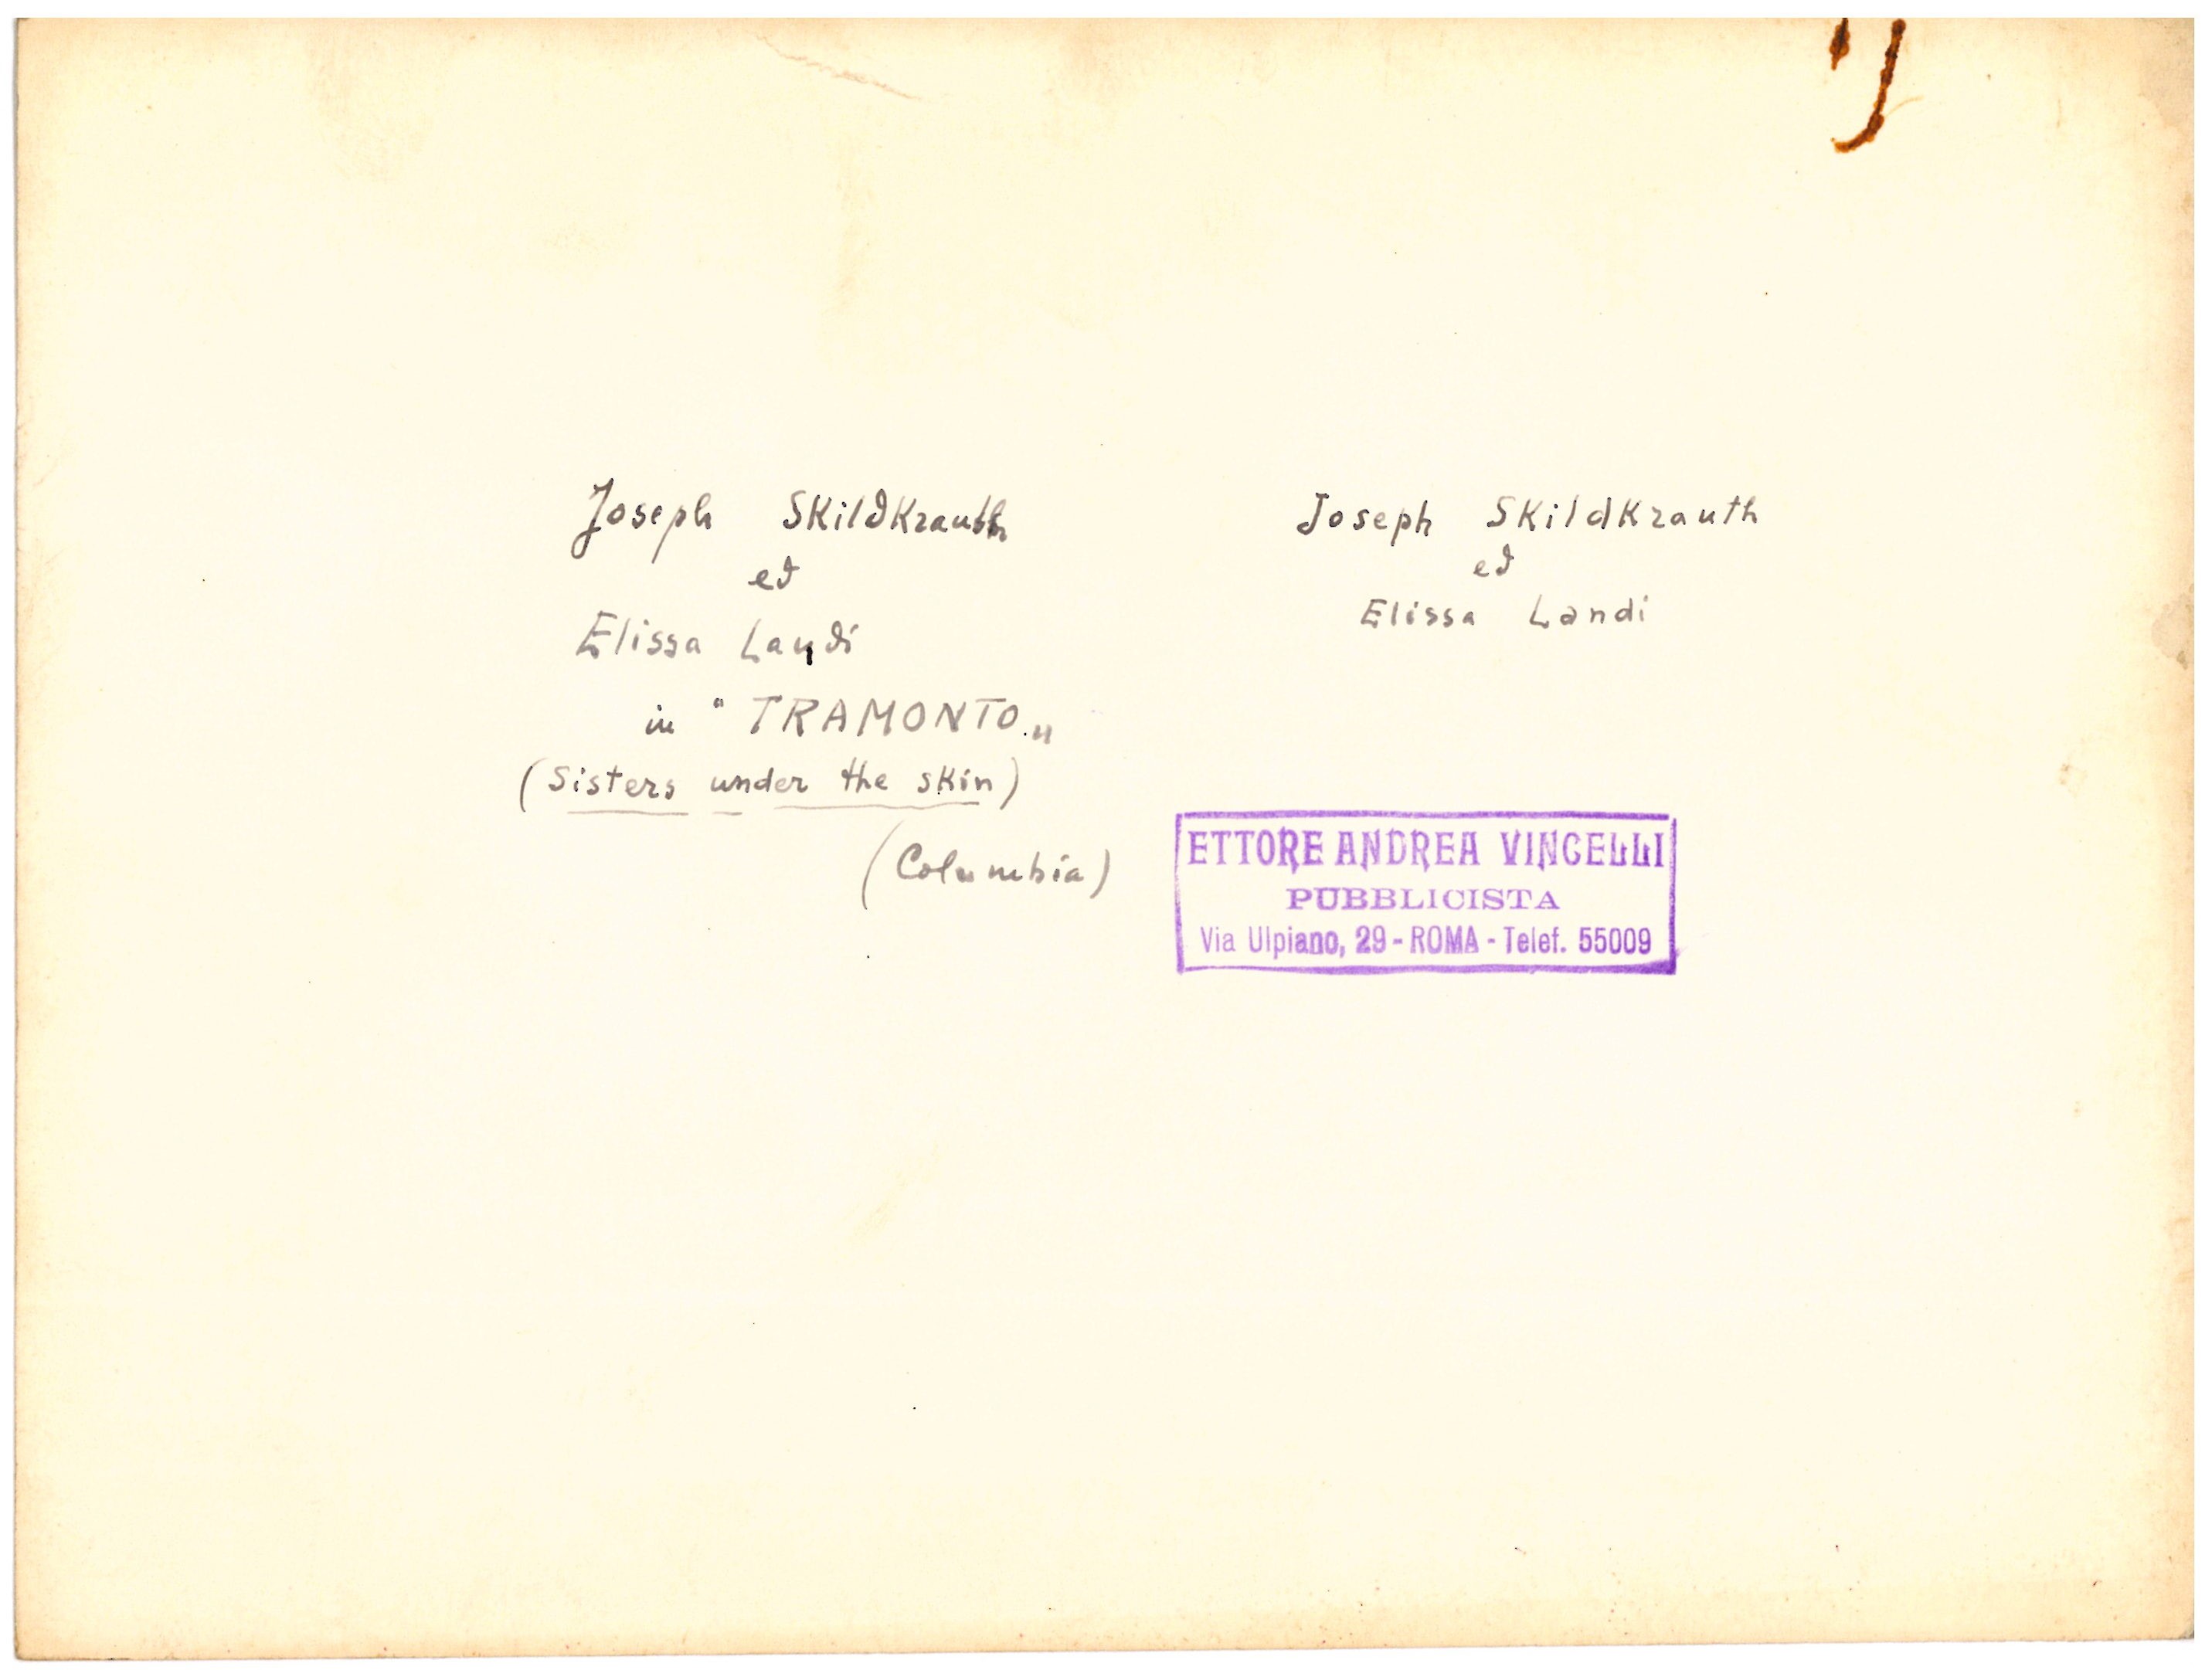 Joseph SKildKrauth
ed
Elissa Landi
in " TRAMONTO „
(Sisters under the sKin)
(Columbia)
Joseph SKildKrauth
ed
Elissa Landi
ETTORE ANDREA VINCELLI
PUBBLICISTA
Via Ulpiano, 29 - ROMA - Telef. 55009